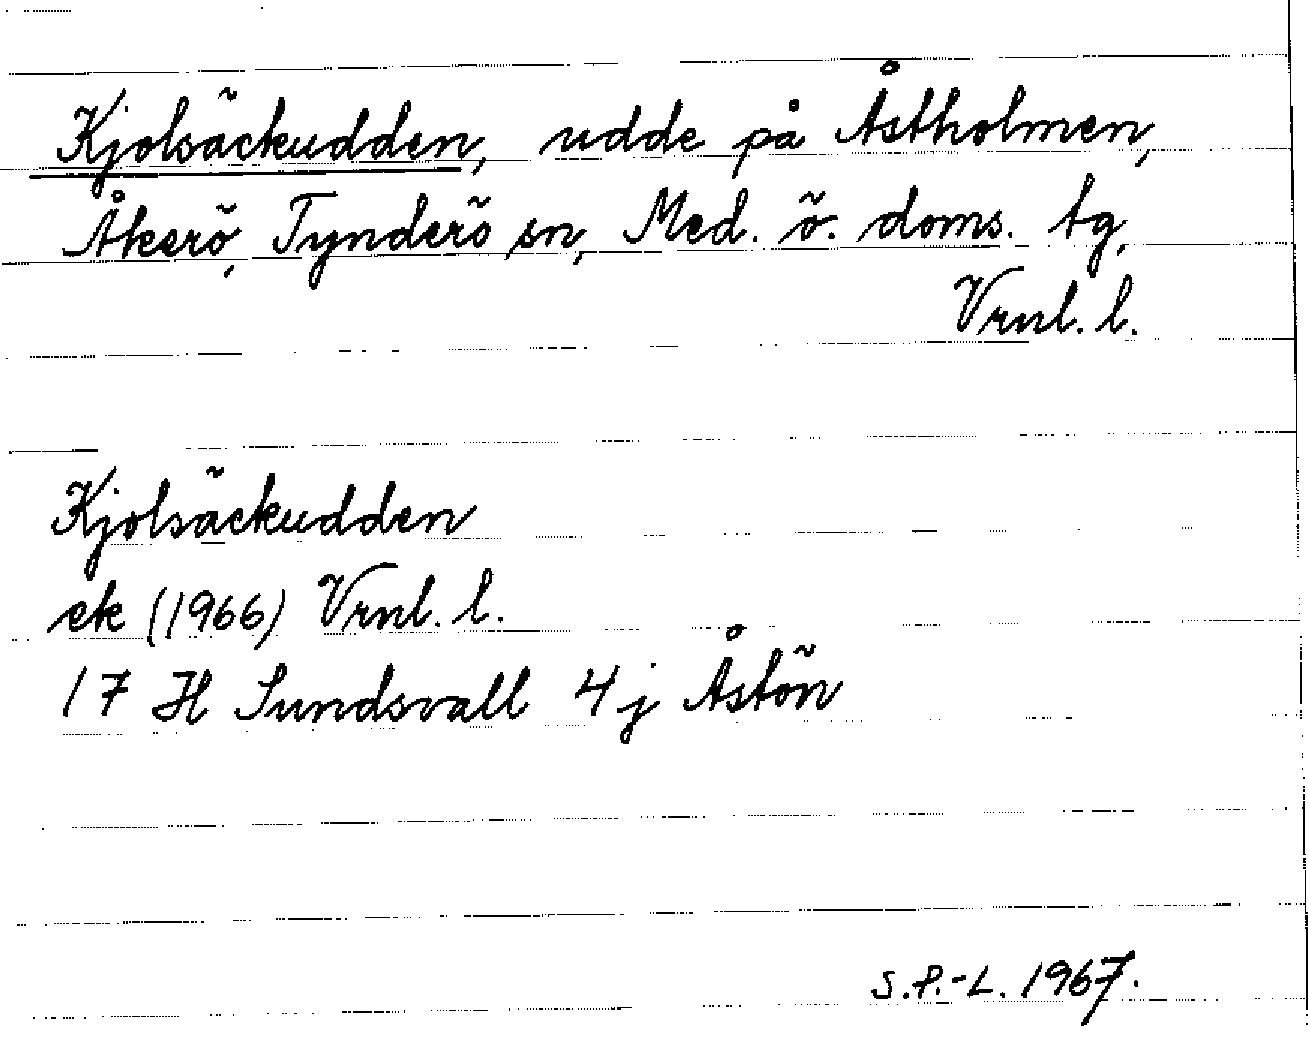 Kjolsäckudden, udde på Åstholmen,
Åkerö, Tynderö sn, Med. ö. doms. tg,
Vrnl. l.
Kjolsäckudden
ek (1966) Vrnl. l.
17 H Sundsvall 4 j Åstön
S.P.-L. 1967.